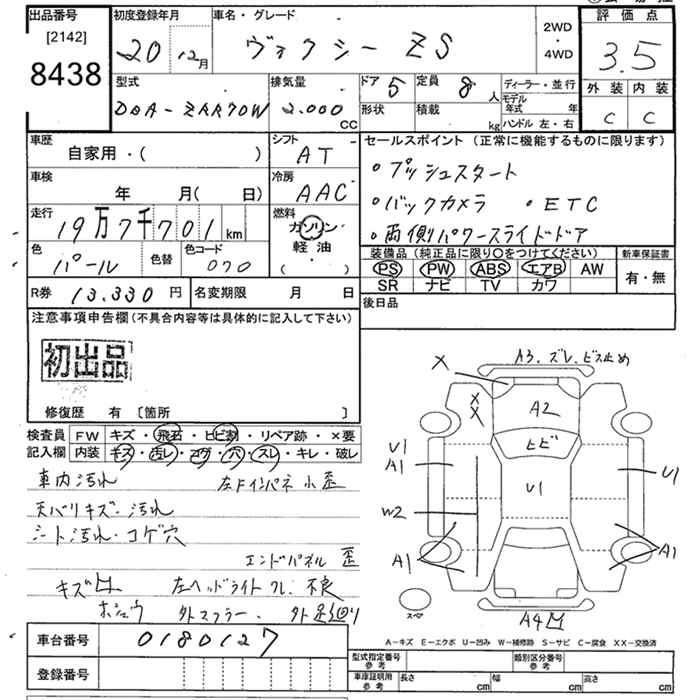 出品番号
[2142]
8438
初度登録年月
20 12月
車名・グレード
ヴォクシー ZS
2WD
・
4WD
評価点
3.5
外装 内装
C C
型式
DBA-ZRR70W
排気量
2.000
CC
ドア 5
定員 8人
形状
積載
kg
ディーラー・並行
モデル年式 年
ハンドル 左・右
車歴
自家用・( )
シフト
AT
車検
年 月( 日)
冷房
AAC
走行
19万7千701 km
燃料
ガソリン
軽油
( )
色
パール
色替
色コード
070
セールスポイント (正常に機能するものに限ります)
・プッシュスタート
・バックカメラ ・ETC
・両側パワースライドドア
装備品 (純正品に限り〇をつけてください)
新車保証書
PS PW ABS エアB AW
SR ナビ TV カワ
有・無
R券 13.330 円
名変期限 月 日
後日品
注意事項申告欄 (不具合内容等は具体的に記入して下さい)
初出品
修復歴 有 [箇所 ]
検査員 FW キズ・飛石・ヒビ割・リペア跡・×要
記入欄 内装 キズ・汚レ・コゲ・穴・スレ・キレ・破レ
車内汚れ 左Fインパネ 小歪
天バリキズ・汚れ
シート汚れ・コゲ穴
エンドパネル 歪
キズ凹 左ヘッドライト 不良
ホシュウ 外マフラー. 外足廻り
A3. ズレ. ビス止め
X
X
X
A2
ヒビ
U1
U1
A1
U1
W2
A1
A1
A4凹
スペア
A-キズ E-エクボ U-凹み W-補修跡 S-サビ C-腐食 XX-交換済
車台番号 0180127
登録番号
型式指定番号
参考
類別区分番号
参考
車庫証明用
参考
長さ cm
幅 cm
高さ cm